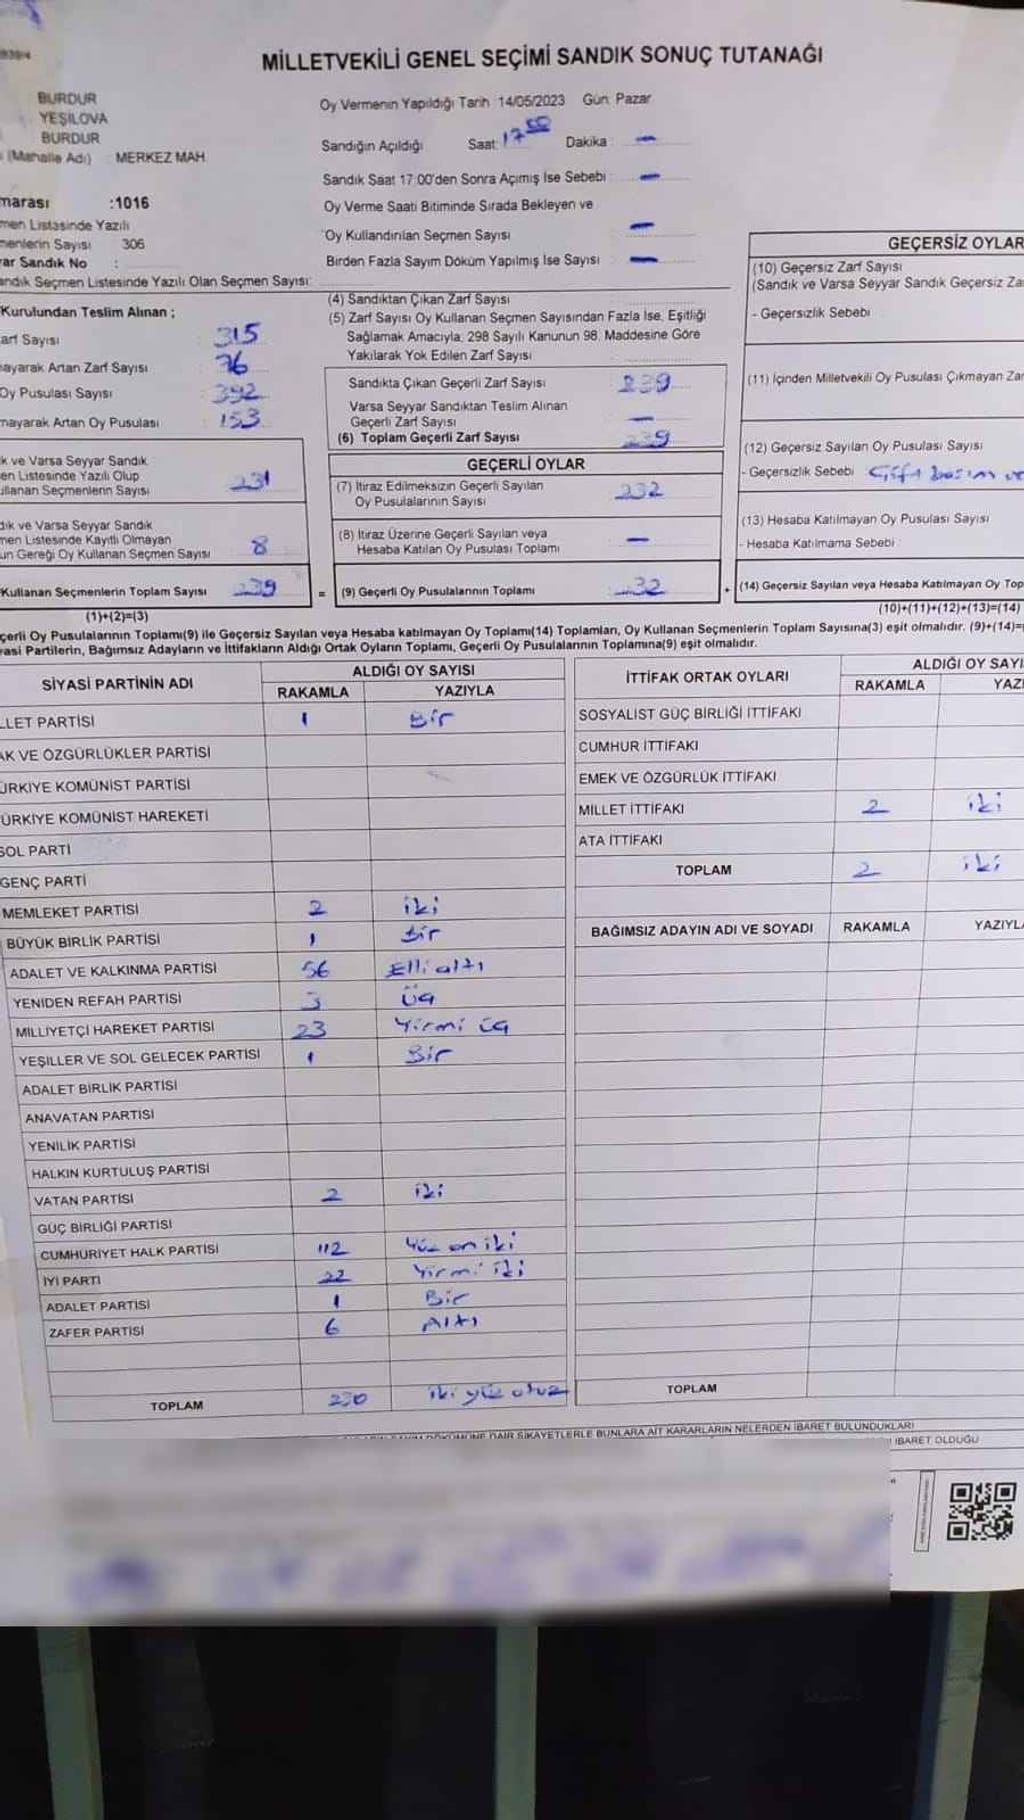 MİLLETVEKİLİ GENEL SEÇİMİ SANDIK SONUÇ TUTANAĞI
BURDUR
YEŞİLOVA
BURDUR
(Mahalle Adı) : MERKEZ MAH.
marası :1016
men Listesinde Yazılı
menlerin Sayısı 306
ar Sandık No :
andık Seçmen Listesinde Yazılı Olan Seçmen Sayısı:
Oy Vermenin Yapıldığı Tarih :14/05/2023 Gün: Pazar
Sandığın Açıldığı Saat: 17 00 Dakika : —
Sandık Saat 17:00'den Sonra Açımış İse Sebebi : —
Oy Verme Saati Bitiminde Sırada Bekleyen ve
Oy Kullandırılan Seçmen Sayısı —
Birden Fazla Sayım Döküm Yapılmış İse Sayısı : —
Kurulundan Teslim Alınan ;
arf Sayısı : 315
ayarak Artan Zarf Sayısı : 76
Oy Pusulası Sayısı : 392
mayarak Artan Oy Pusulası : 153
k ve Varsa Seyyar Sandık
en Listesinde Yazılı Olup
ullanan Seçmenlerin Sayısı 231
dık ve Varsa Seyyar Sandık
men Listesinde Kayıtlı Olmayan
un Gereği Oy Kullanan Seçmen Sayısı 8
Kullanan Seçmenlerin Toplam Sayısı 239
(1)+(2)=(3)
(4) Sandıktan Çıkan Zarf Sayısı
(5) Zarf Sayısı Oy Kullanan Seçmen Sayısından Fazla İse, Eşitliği
Sağlamak Amacıyla, 298 Sayılı Kanunun 98. Maddesine Göre
Yakılarak Yok Edilen Zarf Sayısı
Sandıkta Çıkan Geçerli Zarf Sayısı 239
Varsa Seyyar Sandıktan Teslim Alınan
Geçerli Zarf Sayısı —
(6) Toplam Geçerli Zarf Sayısı 239
GEÇERLİ OYLAR
(7) İtiraz Edilmeksizin Geçerli Sayılan
Oy Pusulalarının Sayısı 232
(8) İtiraz Üzerine Geçerli Sayılan veya
Hesaba Katılan Oy Pusulası Toplamı —
= (9) Geçerli Oy Pusulalarının Toplamı 32 +
GEÇERSİZ OYLAR
(10) Geçersiz Zarf Sayısı
(Sandık ve Varsa Seyyar Sandık Geçersiz Za
- Geçersizlik Sebebi
(11) İçinden Milletvekili Oy Pusulası Çıkmayan Zar
(12) Geçersiz Sayılan Oy Pusulası Sayısı
- Geçersizlik Sebebi Çift basım ve
(13) Hesaba Katılmayan Oy Pusulası Sayısı
- Hesaba Katılmama Sebebi :
(14) Geçersiz Sayılan veya Hesaba Katılmayan Oy Top
(10)+(11)+(12)+(13)=(14)
çerli Oy Pusulalarının Toplamı(9) ile Geçersiz Sayılan veya Hesaba katılmayan Oy Toplamı(14) Toplamları, Oy Kullanan Seçmenlerin Toplam Sayısına(3) eşit olmalıdır. (9)+(14)=
yasi Partilerin, Bağımsız Adayların ve İttifakların Aldığı Ortak Oyların Toplamı, Geçerli Oy Pusulalarının Toplamına(9) eşit olmalıdır.
SİYASİ PARTİNİN ADI ALDIĞI OY SAYISI
RAKAMLA YAZIYLA
LLET PARTİSİ 1 Bir
AK VE ÖZGÜRLÜKLER PARTİSİ
ÜRKİYE KOMÜNİST PARTİSİ
ÜRKİYE KOMÜNİST HAREKETİ
SOL PARTİ
GENÇ PARTİ
MEMLEKET PARTİSİ 2 iki
BÜYÜK BİRLİK PARTİSİ 1 Bir
ADALET VE KALKINMA PARTİSİ 56 Elli altı
YENİDEN REFAH PARTİSİ 3 Üç
MİLLİYETÇİ HAREKET PARTİSİ 23 Yirmi üç
YEŞİLLER VE SOL GELECEK PARTİSİ 1 Bir
ADALET BİRLİK PARTİSİ
ANAVATAN PARTİSİ
YENİLİK PARTİSİ
HALKIN KURTULUŞ PARTİSİ
VATAN PARTİSİ 2 iki
GÜÇ BİRLİĞİ PARTİSİ
CUMHURİYET HALK PARTİSİ 112 Yüz on iki
İYİ PARTİ 22 Yirmi iki
ADALET PARTİSİ 1 Bir
ZAFER PARTİSİ 6 Altı
TOPLAM 230 iki yüz otuz
İTTİFAK ORTAK OYLARI ALDIĞI OY SAYI
RAKAMLA YAZI
SOSYALİST GÜÇ BİRLİĞİ İTTİFAKI
CUMHUR İTTİFAKI
EMEK VE ÖZGÜRLÜK İTTİFAKI
MİLLET İTTİFAKI 2 iki
ATA İTTİFAKI
TOPLAM 2 iki
BAĞIMSIZ ADAYIN ADI VE SOYADI RAKAMLA YAZIYLA
TOPLAM
DÖKÜMÜNE DAİR ŞİKAYETLERLE BUNLARA AİT KARARLARIN NELERDEN İBARET BULUNDUKLARI
İBARET OLDUĞU